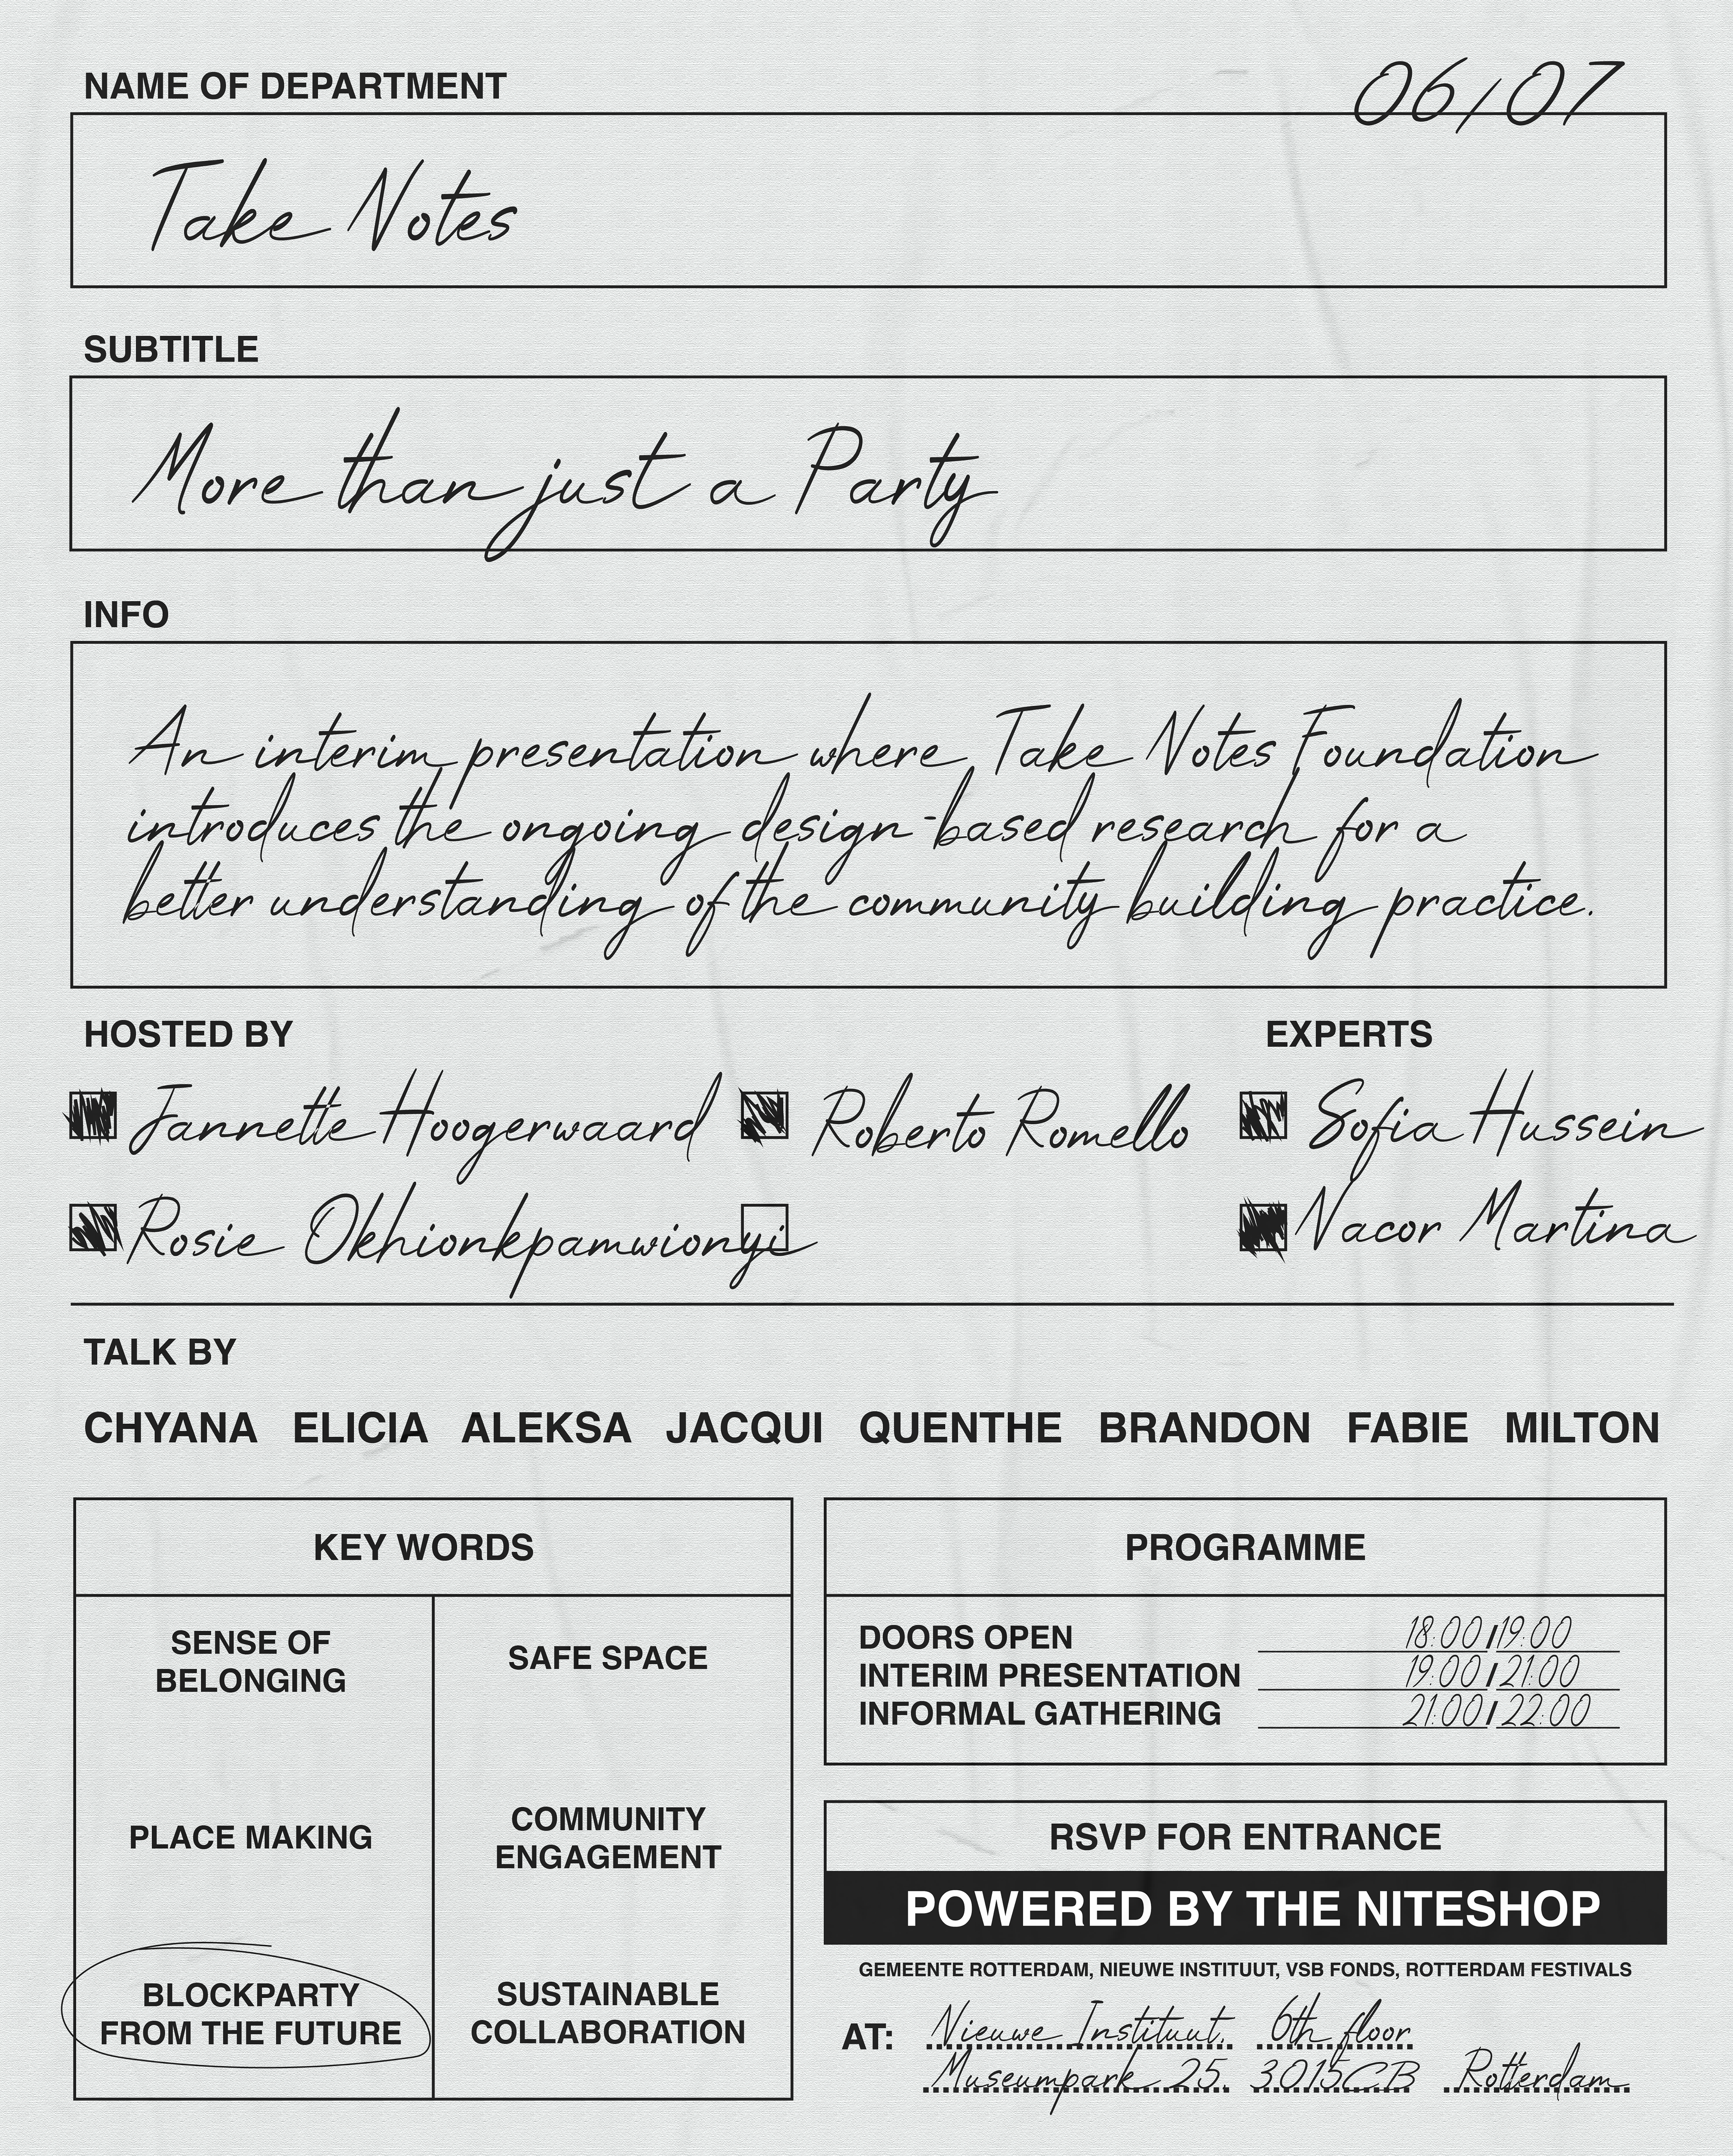 NAME OF DEPARTMENT
06/07
Take Notes
SUBTITLE
More than just a Party
INFO
An interim presentation where Take Notes Foundation
introduces the ongoing design-based research for a
better understanding of the community building practice.
HOSTED BY
Jannette Hoogerwaard
Roberto Romello
Rosie Okhionkpamwionyi
EXPERTS
Sofia Hussein
Nacor Martina
TALK BY
CHYANA ELICIA ALEKSA JACQUI QUENTHE BRANDON FABIE MILTON
KEY WORDS
SENSE OF
BELONGING
SAFE SPACE
PLACE MAKING
COMMUNITY
ENGAGEMENT
BLOCKPARTY
FROM THE FUTURE
SUSTAINABLE
COLLABORATION
PROGRAMME
DOORS OPEN 18:00/19:00
INTERIM PRESENTATION 19:00/21:00
INFORMAL GATHERING 21:00/22:00
RSVP FOR ENTRANCE
POWERED BY THE NITESHOP
GEMEENTE ROTTERDAM, NIEUWE INSTITUUT, VSB FONDS, ROTTERDAM FESTIVALS
AT: Nieuwe Instituut, 6th floor
Museumpark 25. 3015CB Rotterdam